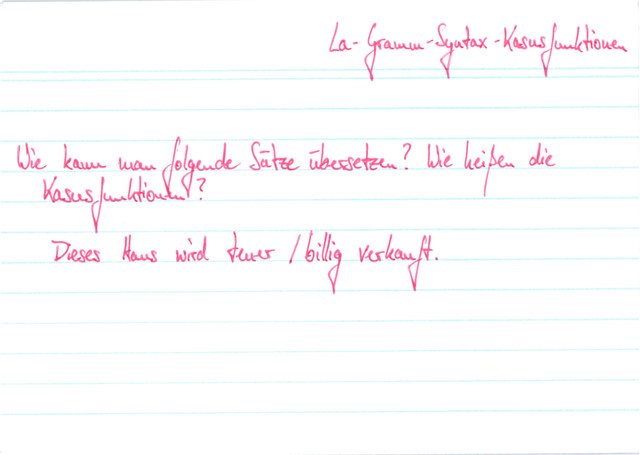 La-Gramm-Syntax-Kasusfunktionen
Wie kann man folgende Sätze übersetzen? Wie heißen die
Kasusfunktionen?
Dieses Haus wird teuer / billig verkauft.